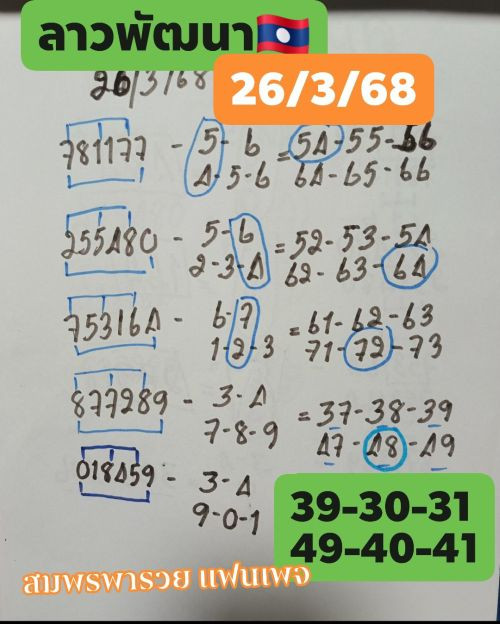 ลาวพัฒนา
26/3/68
26/3/68
781177 - 5-6 = 54-55-66
4-5-6 64-65-66
255480 - 5-6 = 52-53-54
2-3-4 62-63-64
753164 - 6-7 = 61-62-63
1-2-3 71-72-73
877289 - 3-4 = 37-38-39
7-8-9 47-48-49
018459 - 3-4
9-0-1
39-30-31
49-40-41
สมพรพารวย แฟนเพจ